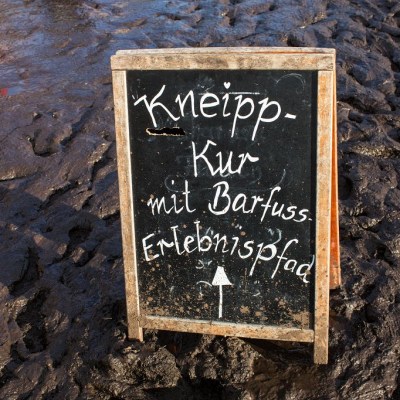 Kneipp-
Kur
mit Barfuss-
Erlebnispfad